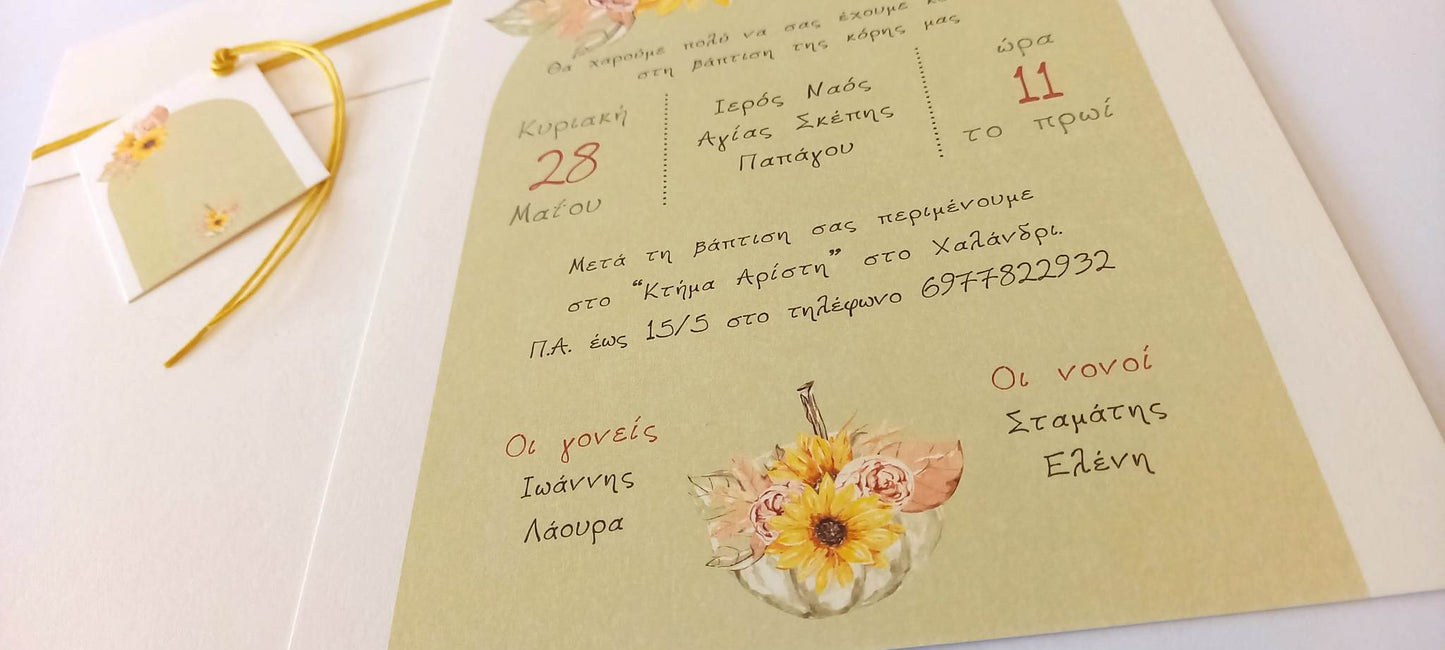 Θα χαρούμε πολύ να σας έχουμε
στη βάπτιση της κόρης μας
Κυριακή
28
Μαΐου
Ιερός Ναός
Αγίας Σκέπης
Παπάγου
ώρα
11
το πρωί
Μετά τη βάπτιση σας περιμένουμε
στο “Κτήμα Αρίστη” στο Χαλάνδρι.
Π.Α. έως 15/5 στο τηλέφωνο 6977822932
Οι γονείς
Ιωάννης
Λάουρα
Οι νονοί
Σταμάτης
Ελένη